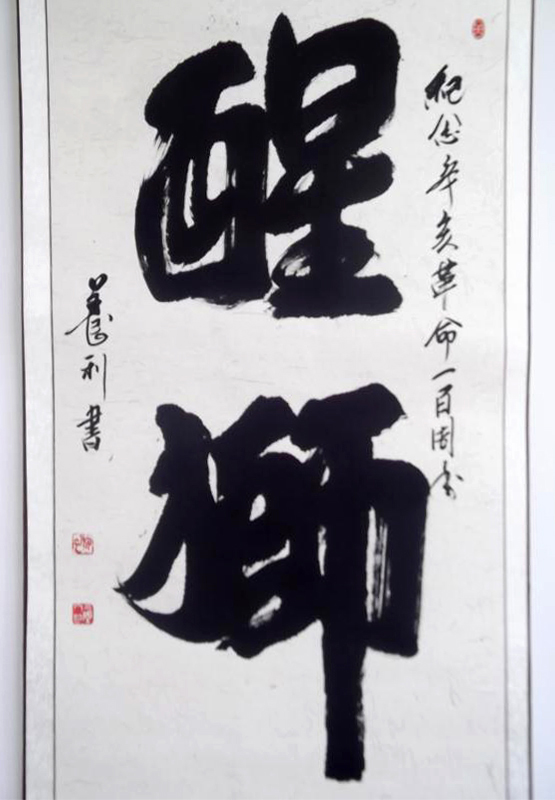 紀念辛亥革命一百周年
醒獅
利書